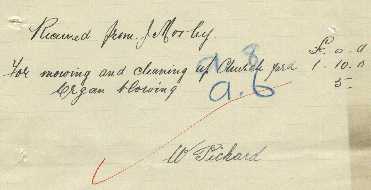 Received from J Mosley.
£ s d
For mowing and cleaning up Church yard 1. 10. 0
a 8
Organ blowing 5.
a.6
W Pickard